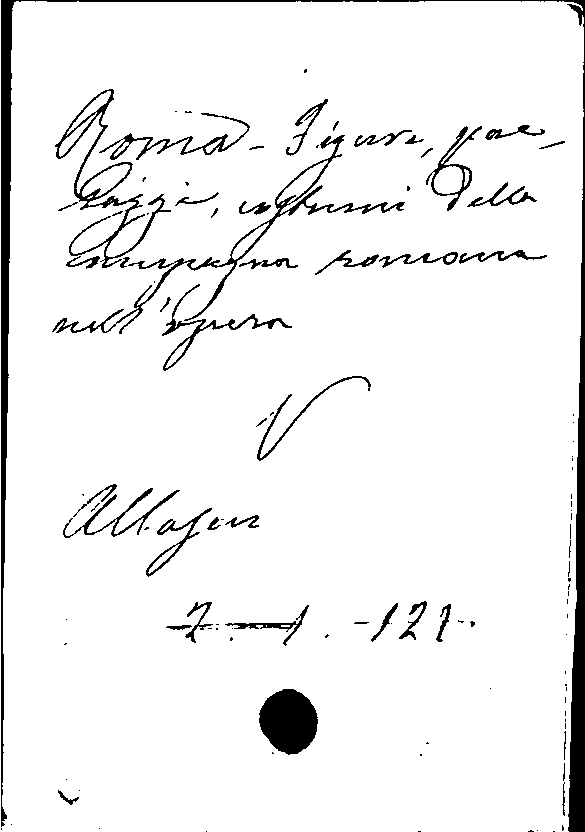 Roma - Figure, pae-
saggi, costumi della
campagna romana
nell'opera
V
Allason
7. - 1. - 121.